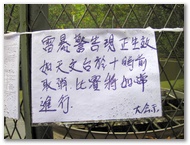 雷暴警告現正生效
如天文台於十時前
取消 比賽將如常
進行.
大会示